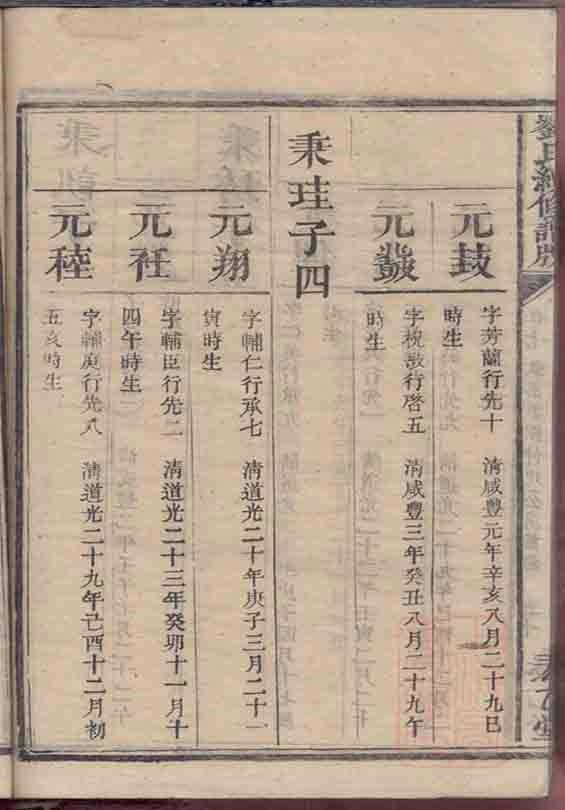 劉氏續修譜房
元𡔷
字芳蘭行先十 清咸豐元年辛亥八月二十九巳
時生
元
字棁敬行啓五 清咸豐三年癸丑八月二十九午
時生
秉珪子四
元翔
字輔仁行承七 清道光二十年庚子三月二十一
寅時生
元社
字輔臣行先二 清道光二十三年癸卯十一月十
四午時生
元稑
字輔庭行先八 清道光二十九年己酉十二月初
五亥時生